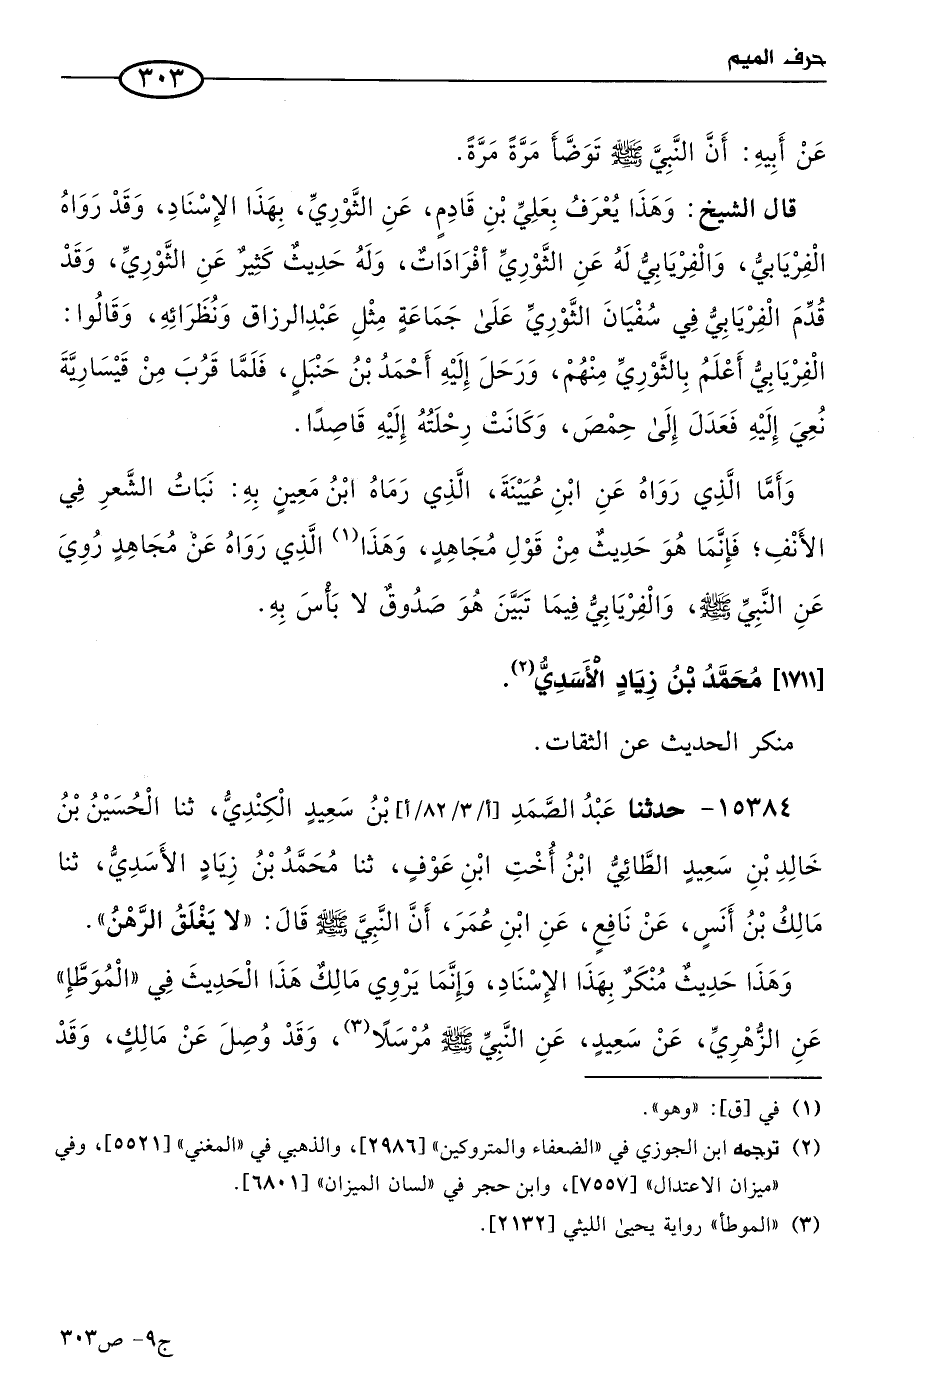 حرف الميم
٣٠٣
عَنْ أَبِيهِ: أَنَّ النَّبِيَّ ﷺ تَوَضَّأَ مَرَّةً مَرَّةً.
قال الشيخ: وَهَذَا يُعْرَفُ بِعَلِيِّ بْنِ قَادِمٍ، عَنِ الثَّوْرِيِّ، بِهَذَا الإِسْنَادِ، وَقَدْ رَوَاهُ
الْفِرْيَابِيُّ، وَالْفِرْيَابِيُّ لَهُ عَنِ الثَّوْرِيِّ أَفْرَادَاتٌ، وَلَهُ حَدِيثٌ كَثِيرٌ عَنِ الثَّوْرِيِّ، وَقَدْ
قُدِّمَ الْفِرْيَابِيُّ فِي سُفْيَانَ الثَّوْرِيِّ عَلَىٰ جَمَاعَةٍ مِثْلِ عَبْدِالرزاق وَنُظَرَائِهِ، وَقَالُوا:
الْفِرْيَابِيُّ أَعْلَمُ بِالثَّوْرِيِّ مِنْهُمْ، وَرَحَلَ إِلَيْهِ أَحْمَدُ بْنُ حَنْبَلٍ، فَلَمَّا قَرُبَ مِنْ قَيْسَارِيَّةَ
نُعِيَ إِلَيْهِ فَعَدَلَ إِلَىٰ حِمْصَ، وَكَانَتْ رِحْلَتُهُ إِلَيْهِ قَاصِدًا.
وَأَمَّا الَّذِي رَوَاهُ عَنِ ابْنِ عُيَيْنَةَ، الَّذِي رَمَاهُ ابْنُ مَعِينٍ بِهِ: نَبَاتُ الشَّعرِ فِي
الأَنْفِ؛ فَإِنَّمَا هُوَ حَدِيثٌ مِنْ قَوْلِ مُجَاهِدٍ، وَهَذَا(١) الَّذِي رَوَاهُ عَنْ مُجَاهِدٍ رُوِيَ
عَنِ النَّبِيِّ ﷺ، وَالْفِرْيَابِيُّ فِيمَا تَبَيَّنَ هُوَ صَدُوقٌ لا بَأْسَ بِهِ.
[١٧١١] مُحَمَّدُ بْنُ زِيَادٍ الْأَسَدِيُّ(٢).
منكر الحديث عن الثقات.
١٥٣٨٤- حدثنا عَبْدُ الصَّمَدِ [أ/٨٢/٣/أ] بْنُ سَعِيدٍ الْكِنْدِيُّ، ثنا الْحُسَيْنُ بْنُ
خَالِدِ بْنِ سَعِيدٍ الطَّائِيُّ ابْنُ أُخْتِ ابْنِ عَوْفٍ، ثنا مُحَمَّدُ بْنُ زِيَادٍ الأَسَدِيُّ، ثنا
مَالِكُ بْنُ أَنَسٍ، عَنْ نَافِعٍ، عَنِ ابْنِ عُمَرَ، أَنَّ النَّبِيَّ ﷺ قَالَ: «لا يَغْلَقُ الرَّهْنُ».
وَهَذَا حَدِيثٌ مُنْكَرٌ بِهَذَا الإِسْنَادِ، وَإِنَّمَا يَرْوِي مَالِكٌ هَذَا الْحَدِيثَ فِي «الْمُوَطَّإِ»
عَنِ الزُّهْرِيِّ، عَنْ سَعِيدٍ، عَنِ النَّبِيِّ ﷺ مُرْسَلًا(٣)، وَقَدْ وُصِلَ عَنْ مَالِكٍ، وَقَدْ
(١) في [ق]: «وهو».
(٢) ترجمه ابن الجوزي في «الضعفاء والمتروكين» [٢٩٨٦]، والذهبي في «المغني» [٥٥٢١]، وفي
«ميزان الاعتدال» [٧٥٥٧]، وابن حجر في «لسان الميزان» [٦٨٠١].
(٣) «الموطأ» رواية يحيىٰ الليثي [٢١٣٢].
ج٩- ص٣٠٣